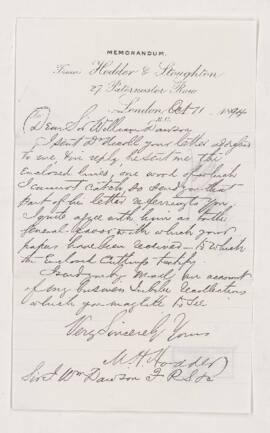 MEMORANDUM.
From Hodder & Stoughton
27 Paternoster Row
London, Oct 11 1894
E.C.
Dear Sir William Dawson
I sent Dr Nicoll your letter
to me, in reply, he sent me the
enclosed lines, one word of which
I cannot catch, so I send you that
part of the letter referring to you,
I quite agree with him as to the
general favor with which your
papers have been received - to which
the Enclosed Cuttings testify.
I send you by an account
of my Jubilee
which you might like to see
Very Sincerely Yours
M. H. Hodder
Sir J Wm Dawson F.R.S &c